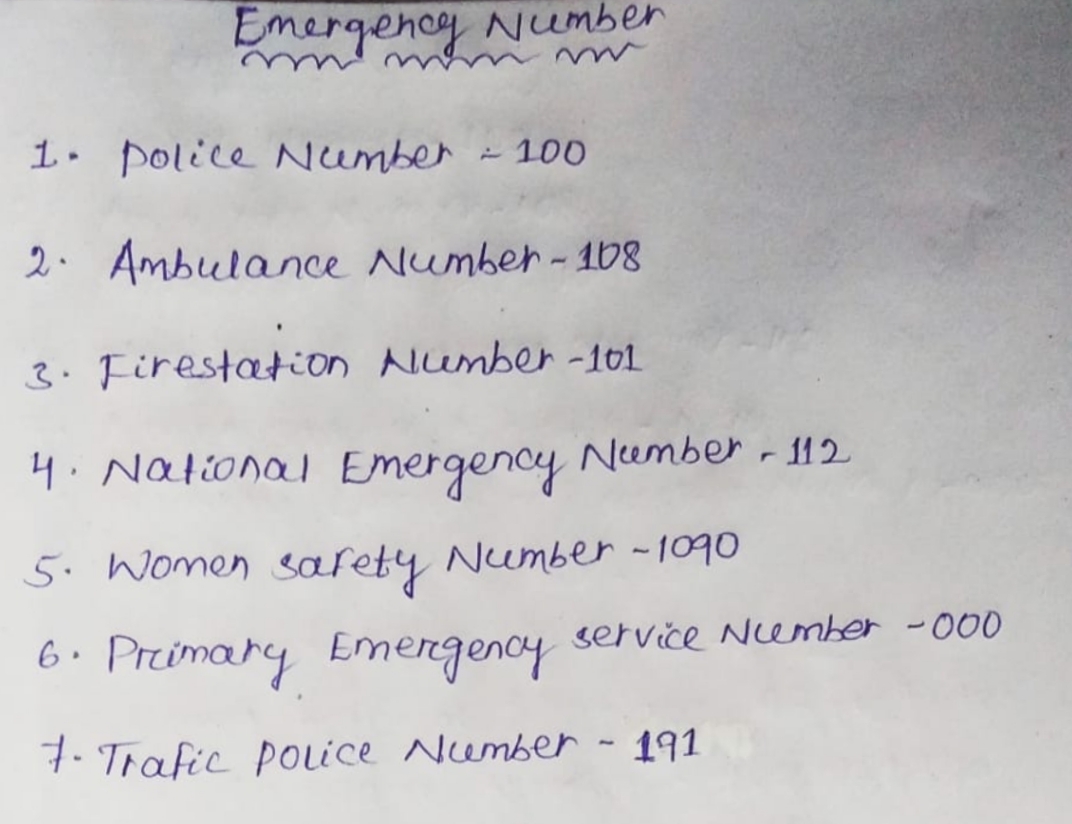 Emergency Number
1. Police Number - 100
2. Ambulance Number - 108
3. Firestation Number - 101
4. National Emergency Number - 112
5. Women safety Number - 1090
6. Primary Emergency service Number - 000
7. Trafic police Number - 191